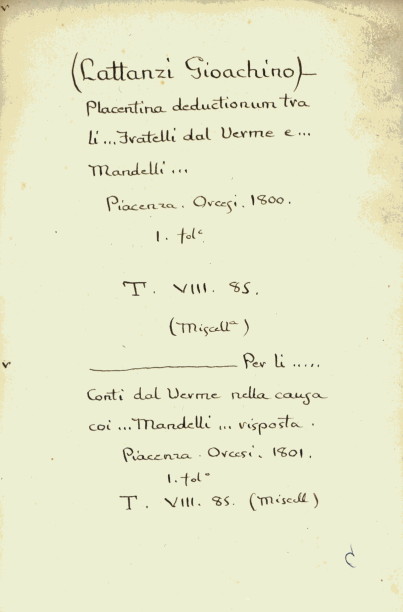 (Lattanzi Gioachino)
Placentina deductionum tra
li ... Fratelli dal Verme e ...
Mandelli ...
Piacenza. Orcesi. 1800.
1. folº
T. VIII. 85.
(Miscellª)
Per li .....
Conti dal Verme nella causa
coi ... Mandelli ... risposta.
Piacenza. Orcesi. 1801.
1. folº
T. VIII. 85. (Miscell)